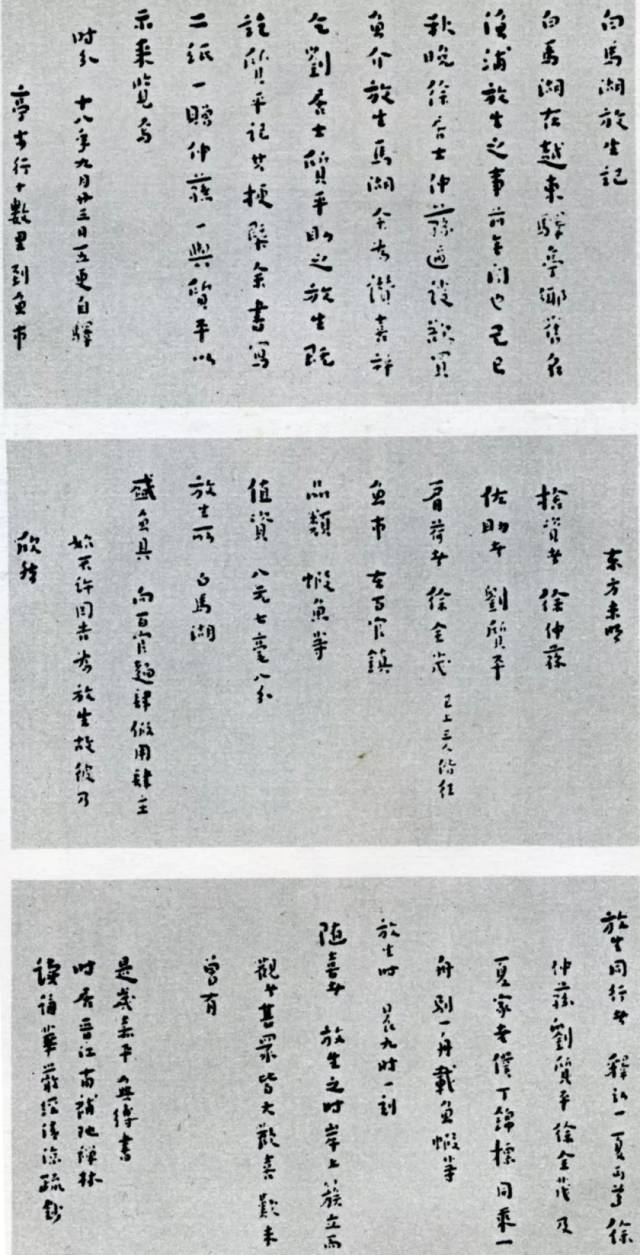 白馬湖放生記
白馬湖在越東驛亭鄉舊名
漁浦放生之事前未聞也己巳
秋晚徐居士仲蓀適談欲買
魚介放生馬湖余為讚喜並
乞劉居士質平助之放生既
訖質平記其梗概余書寫
二紙一贈仲蓀一與質平以
示來覽焉
時分 十八年九月廿三日五更自驛
亭步行十數里到魚市
東方未明
捨資者 徐仲蓀
佐助者 劉質平
肩荷者 徐全茂 已上三人偕往
魚市 在百官鎮
品類 蝦魚等
值資 八元七毫八分
放生所 白馬湖
盛魚具 向百官麵肆假用肆主
始不許因告為放生故彼乃
欣然
放生同行者 釋弘一夏丏尊徐
仲蓀劉質平徐全茂及
夏家老僕丁錦標同乘一
舟別一舟載魚蝦等
放生時 晨九時一刻
隨喜者 放生之時岸上簇立而
觀者甚眾皆大歡喜歎未
曾有
是歲嘉平無縛書
時居晉江南補陀禪林
讀誦華嚴經清涼疏鈔